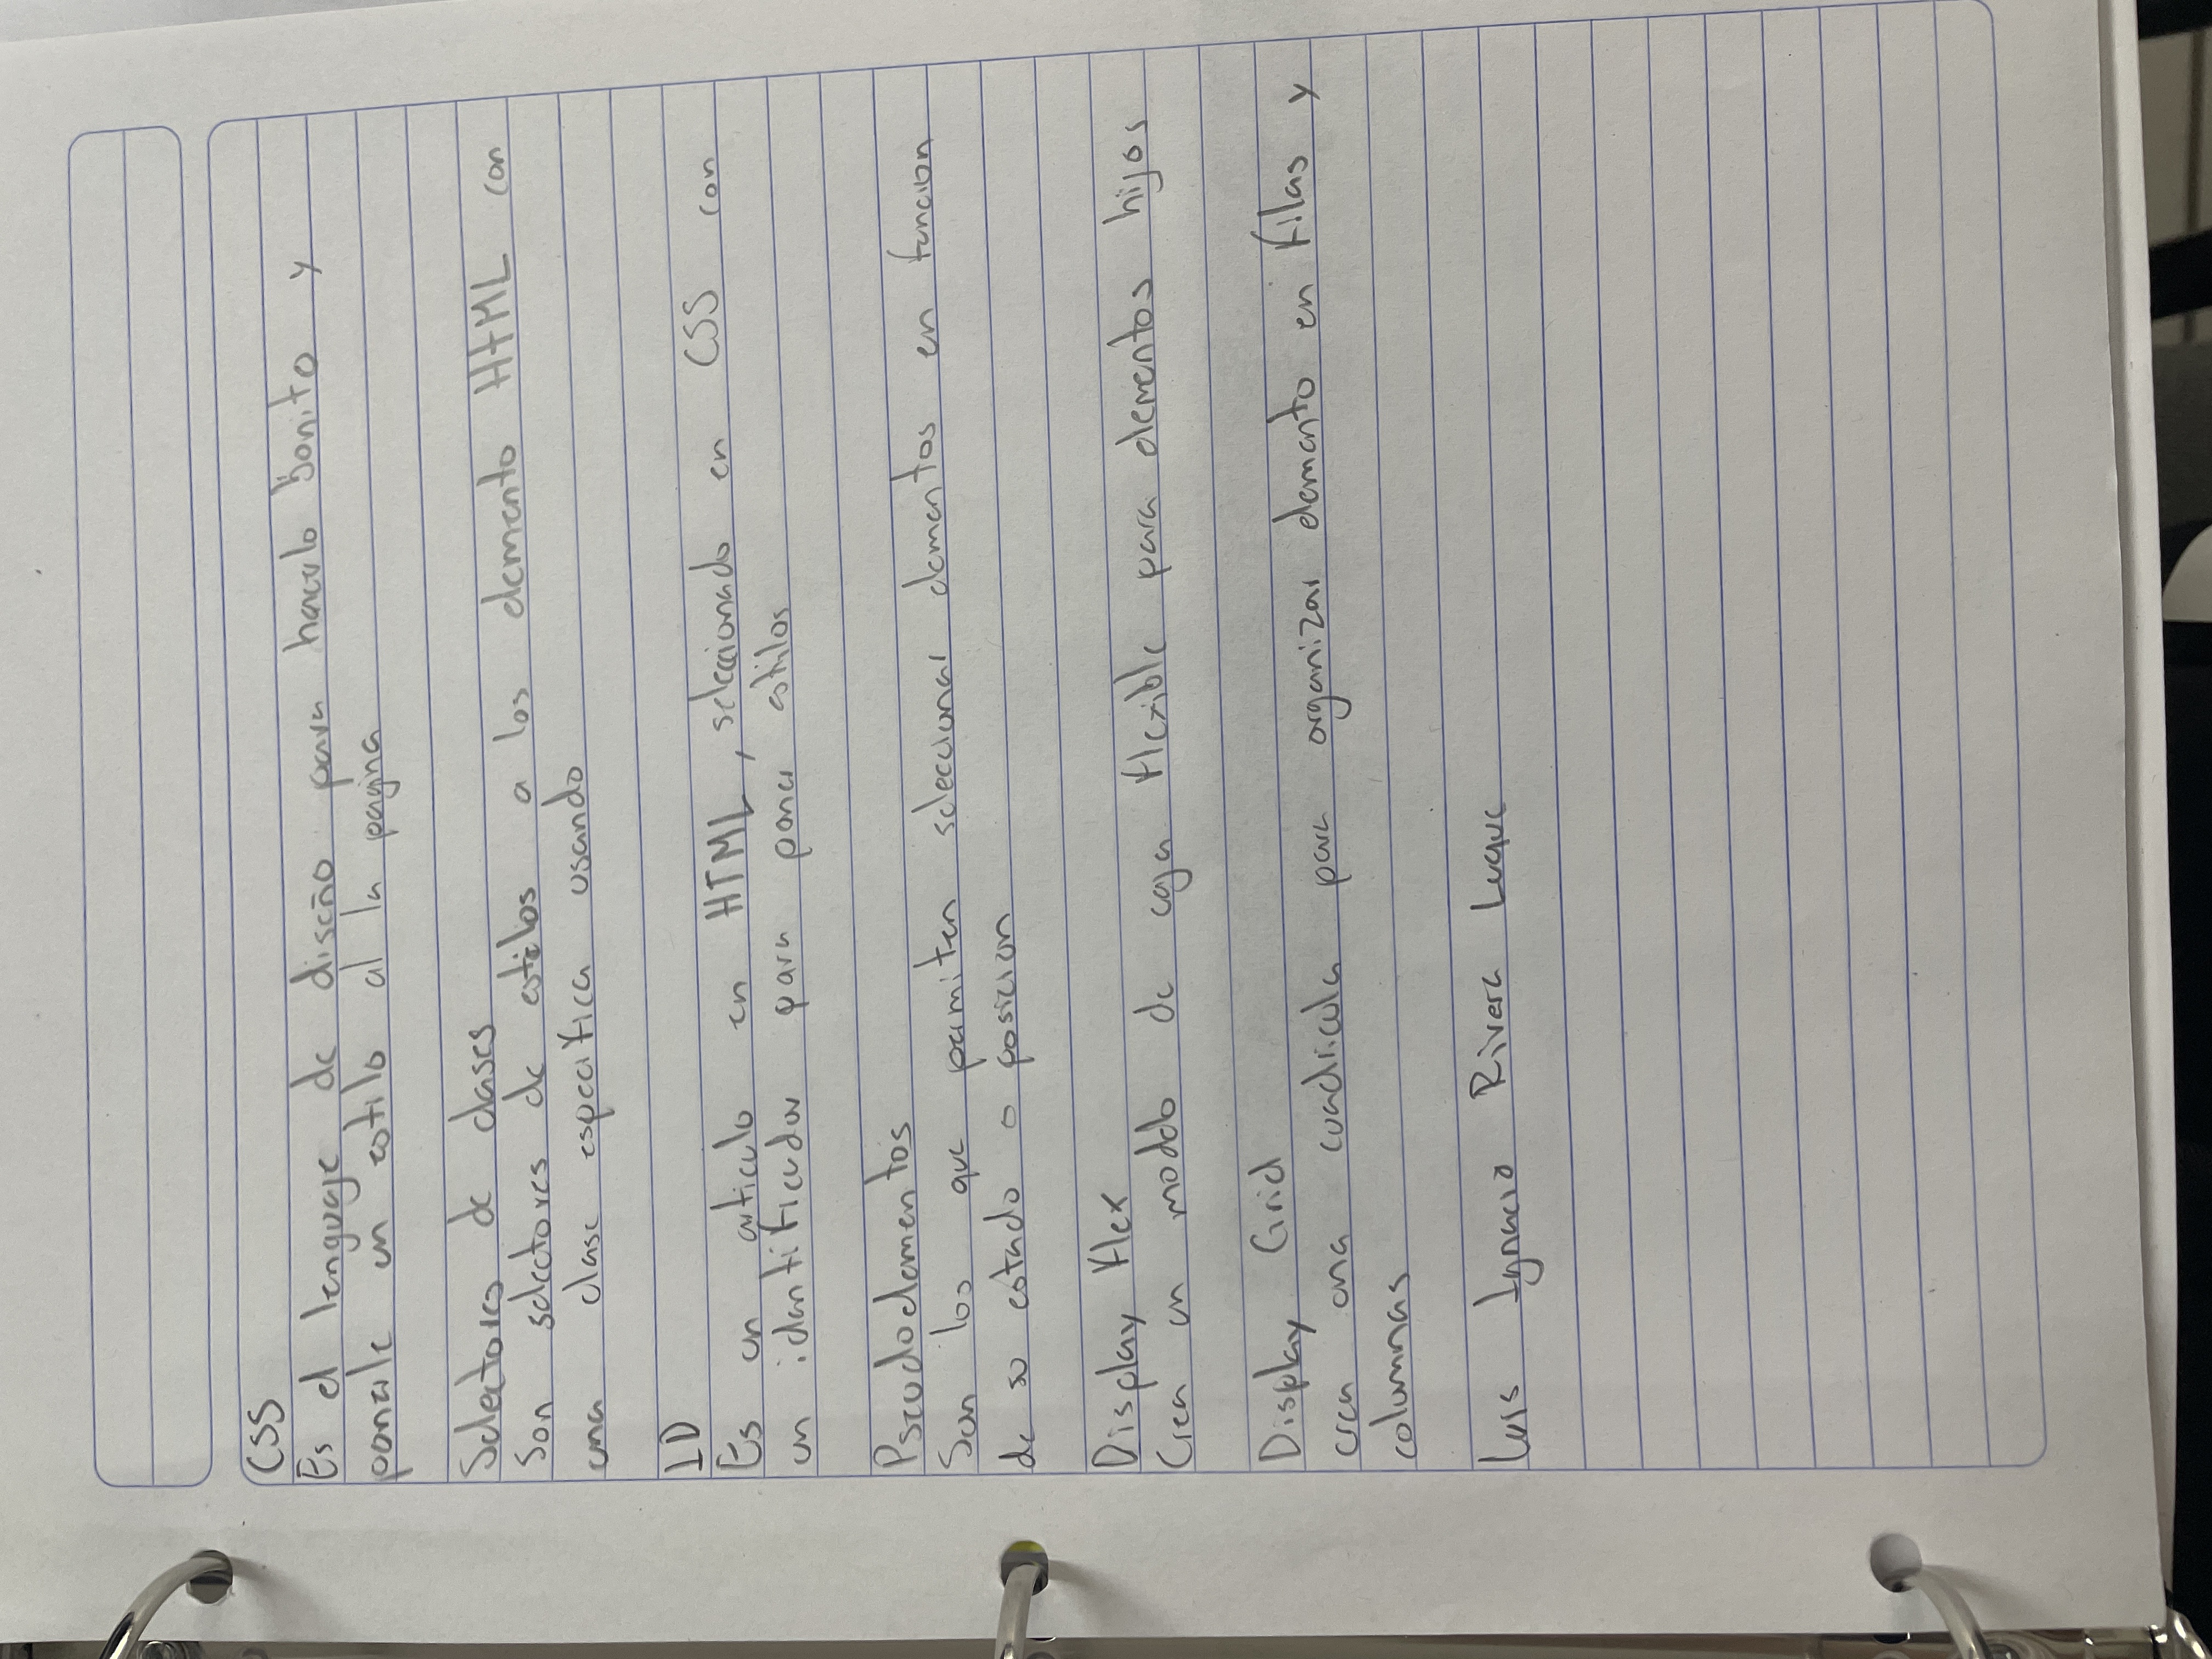 CSS
Es el lenguaje de diseño para hacerlo bonito y
ponerle un estilo al la pagina
Selectores de clases
Son selectores de estilos a los elemento HTML con
una clase especifica usando
ID
Es un articulo en HTML, seleccionado en CSS con
un identificador para poner estilos
Pseudoelementos
Son los que permiten seleccionar elementos en funcion
de su estado o posicion
Display flex
Crea un modelo de caja flexible para elementos hijos
Display Grid
crea una cuadricula para organizar elemento en filas y
columnas
Luis Ignacio Rivera Luque